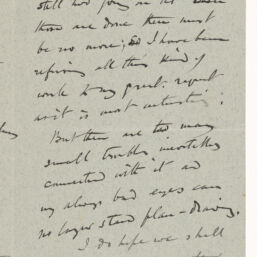 still
those are done there must
be no more; So I have been
refusing all this kind of
work to my great regret
as it is most interesting:
But there are too many
small troubles inevitably
connected with it and
my always bad eyes can
no longer stand plan-drawing.
I do hope we shall